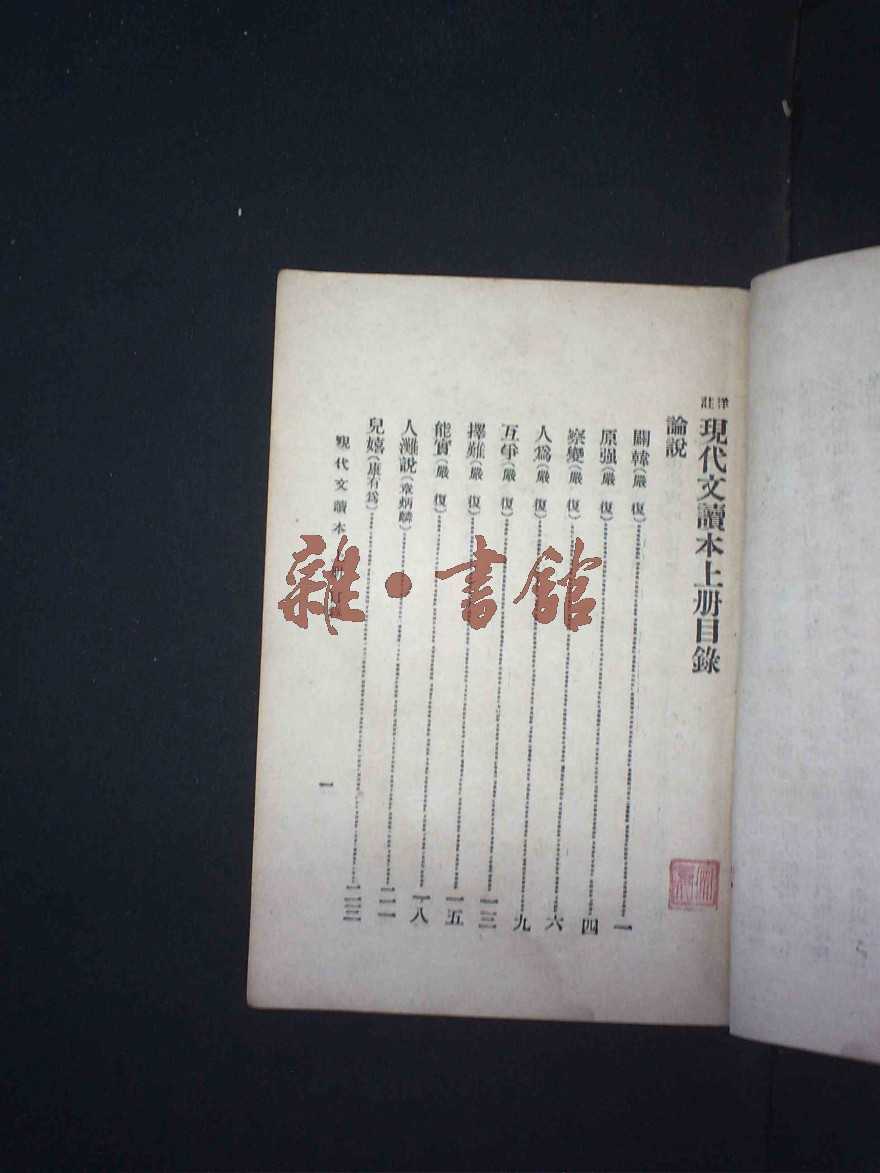 詳註現代文讀本上册目錄
論說
闢韓(嚴 復)……一
原强(嚴 復)……四
察變(嚴 復)……六
人爲(嚴 復)……九
互爭(嚴 復)……一三
擇難(嚴 復)……一五
能實(嚴 復)……一八
人灘說(章炳麟)……二一
兒嬉(康有爲)……二三
現代文讀本 目
一
雜·書館